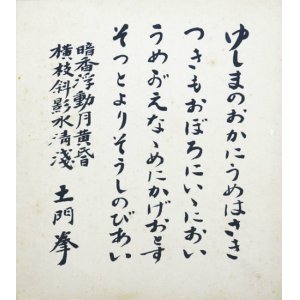 ゆしまのおかにうめはさき
つきもおぼろにいゝにおい
うめがえなゝめにかげおとす
そつとよりそうしのびあい
暗香浮動月黄昏
横枝斜影水清淺
土門拳